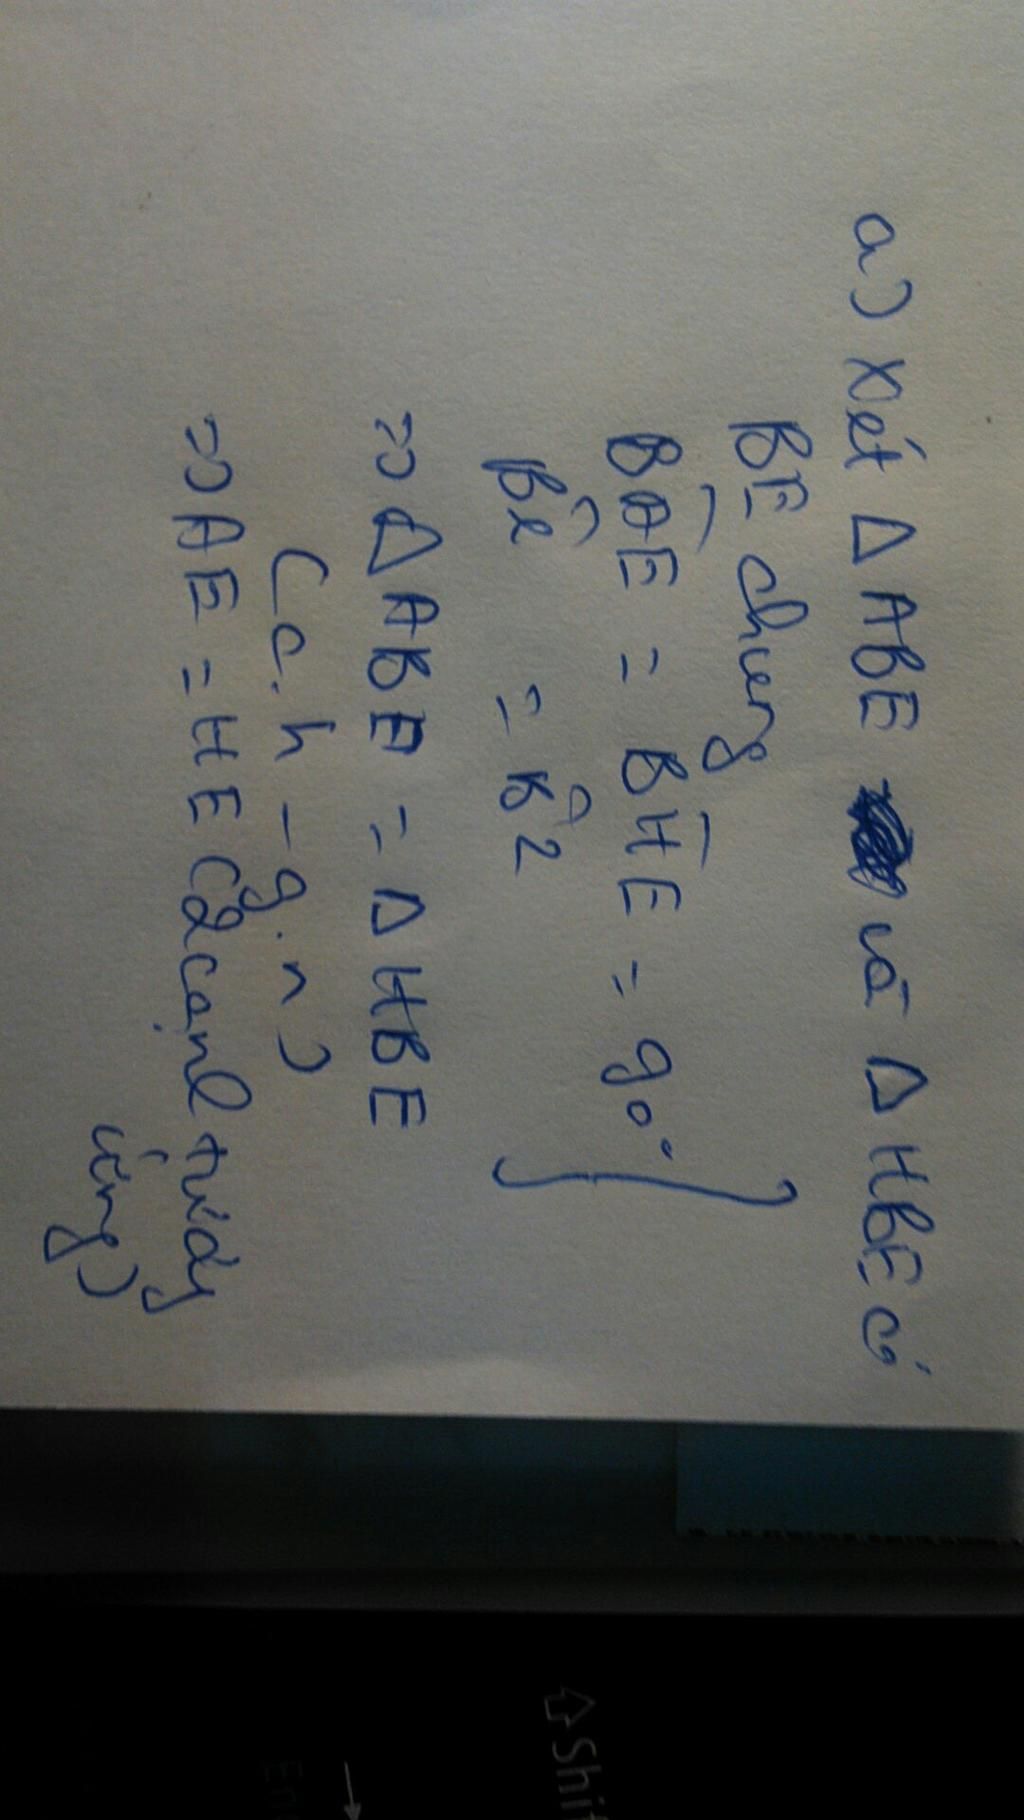 a) Xét Δ ABE và Δ HBE có
BE chung
BÂE = BĤE = 90°
B̂1 = B̂2
=> Δ ABE = Δ HBE
(c.h - g.n)
=> AE = HE (2 cạnh tướng
ứng)
Shif
En